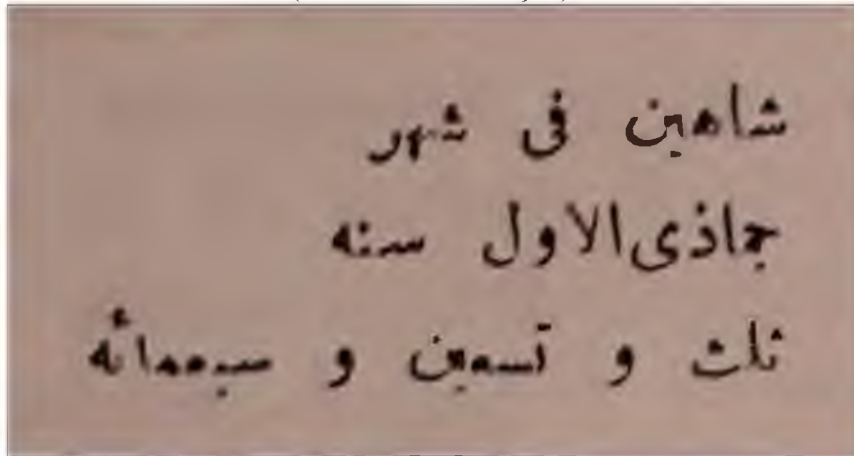 شاهین فی شهر
جماذی الاول سنه
ثلث و تسعین و سبعمائه